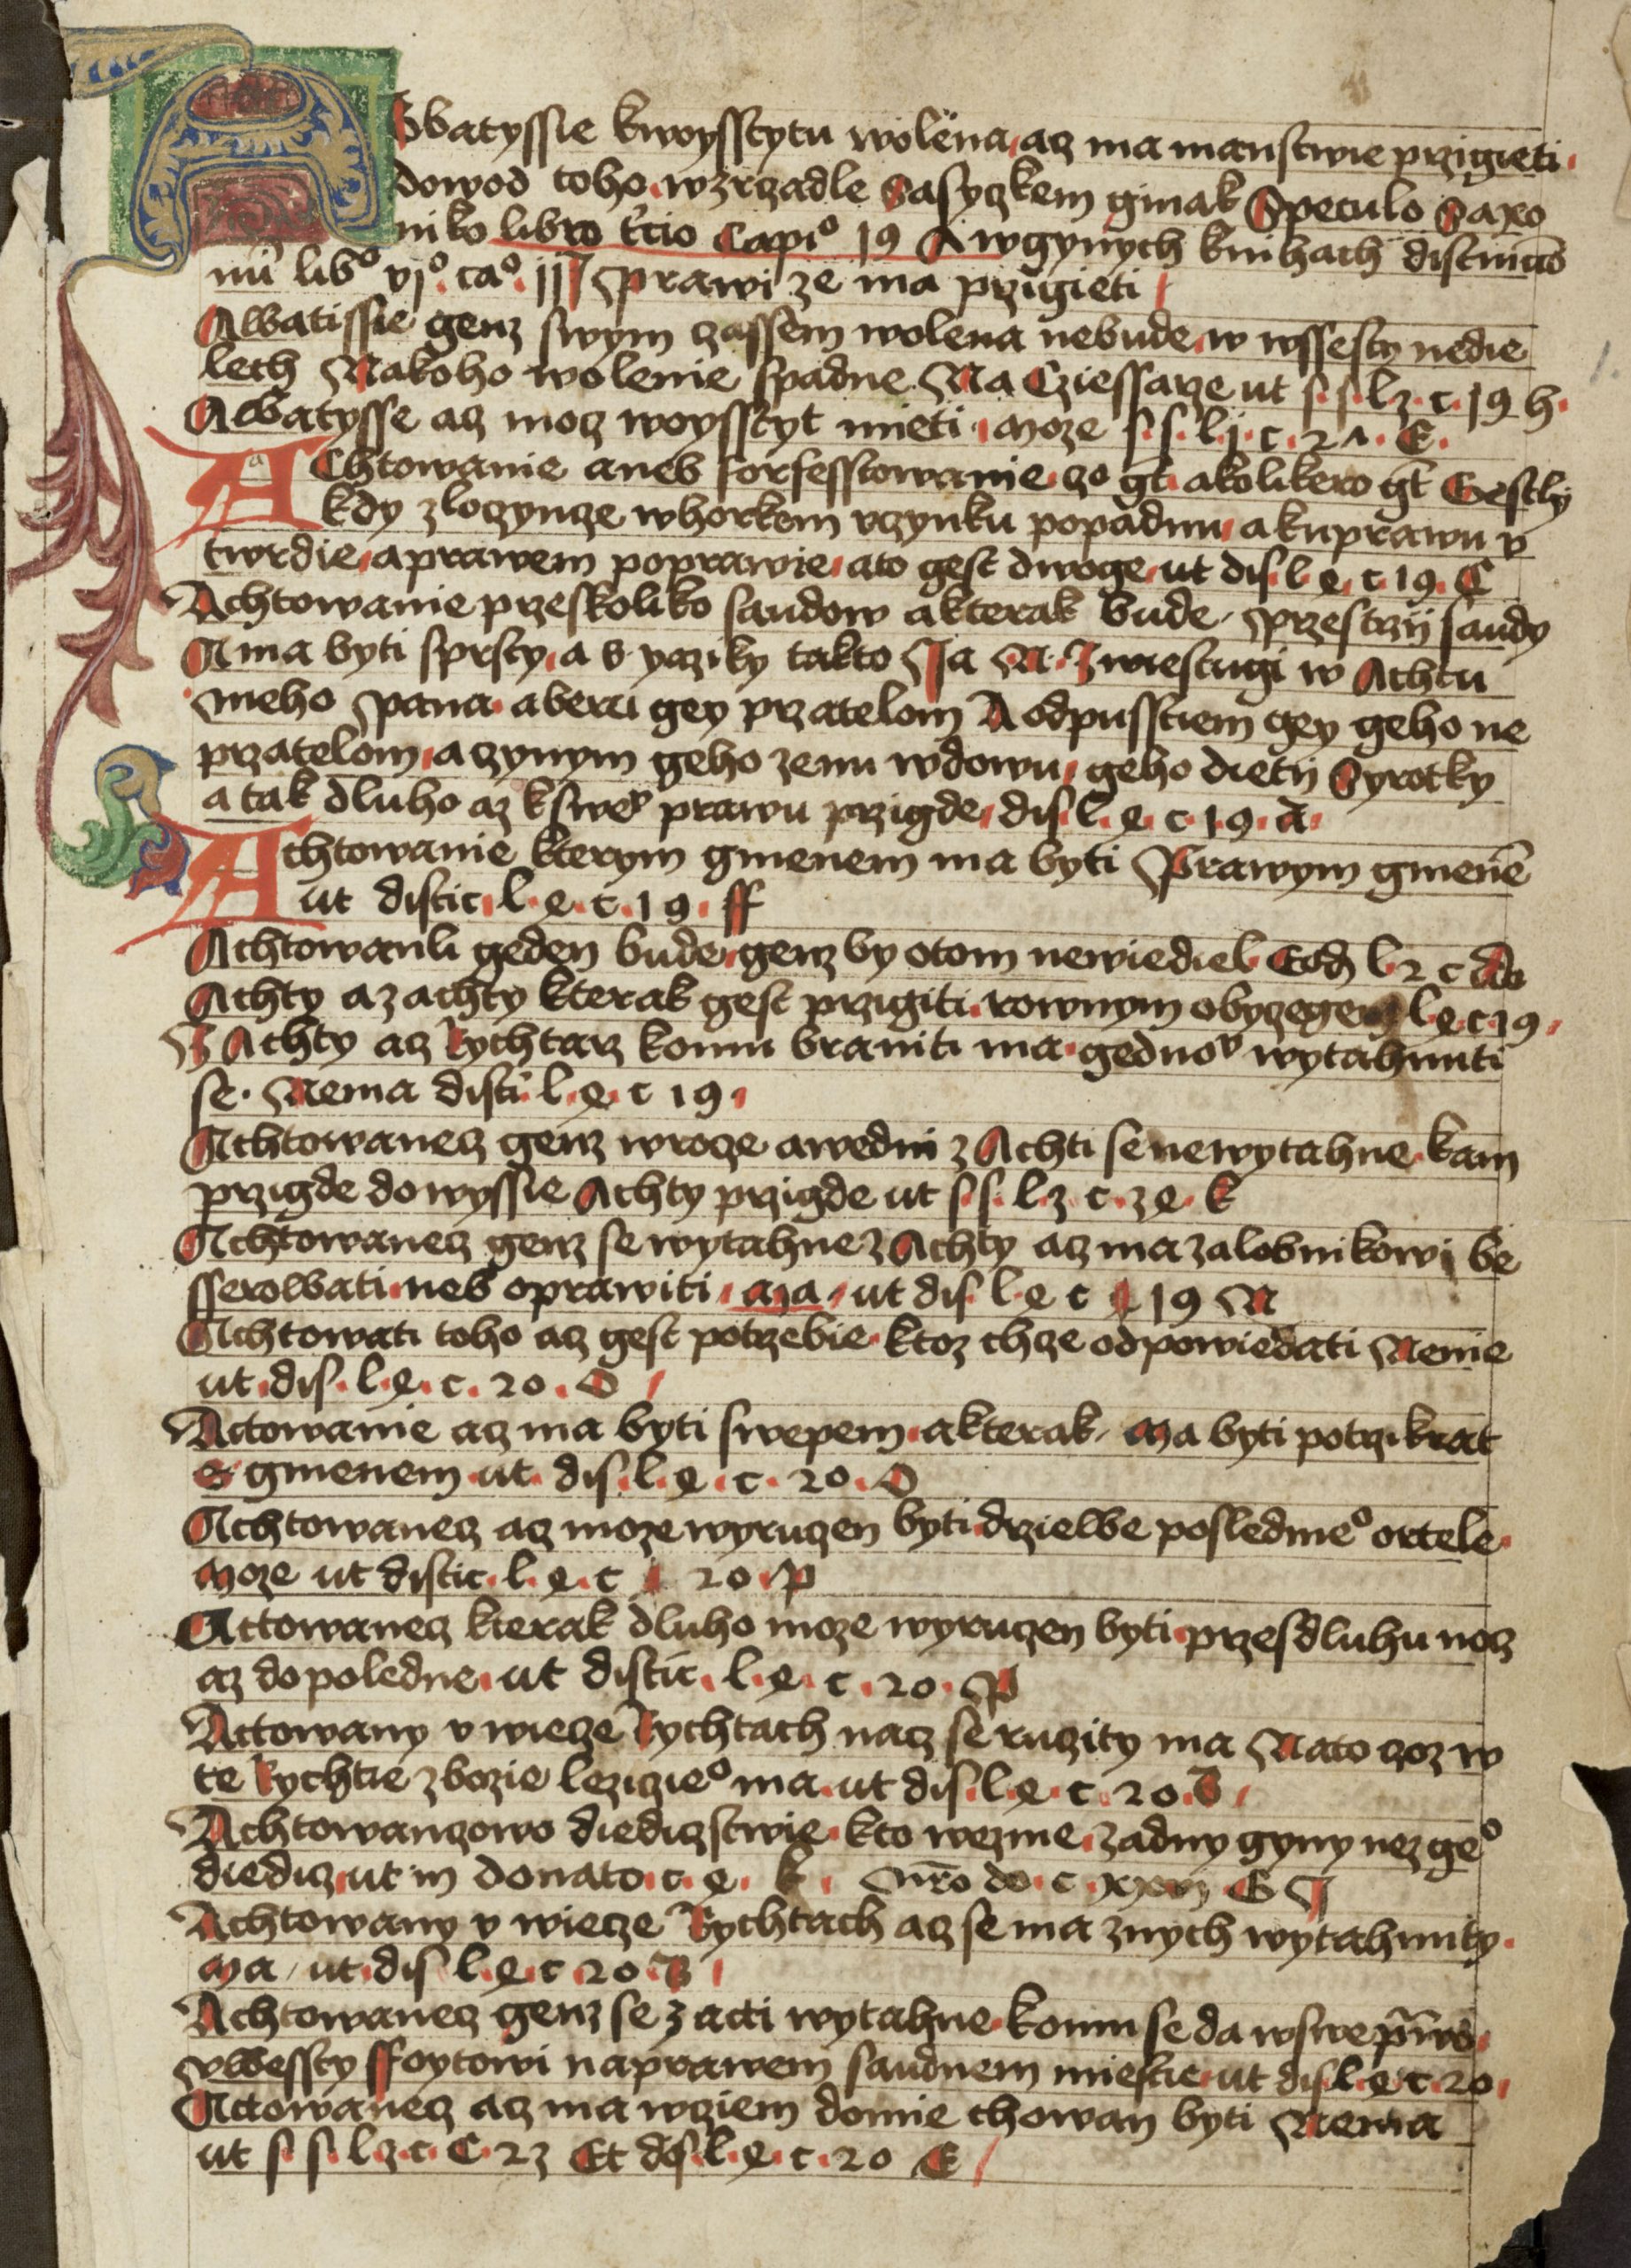 Abbatyssie kwoysstytu wolena acz ma manstwie przigieti
dowod toho wzrzadle Sasyczkem ginak Speculo Saxo
niko libro t'cio Capi° 19 A wgynych knihach distinccō
nū lib° vj° ca° iij Prawi ze ma przigieti
Abbatissie genz swym czassem wolena nebude w wssesty nedie
lech Nakoho wolenie spadne Na Cziessarze ut s. s. l 3. c. 19 h.
Abbatysse acz mocz woysstyt mieti moze s. s. l j. c. 21. E.
AChtowanie aneb forfesstowanie czo gt akolikero gt Gestly
kdy zloczyncze whorkem vczynku popadnu akuprawu v
twrdie aprawem poprawie ato gest dwoge ut dis l e c 19. C
Achtowanie przeskoliko saudow akterak bude przestrzij saudy
A ma byti sprsty a s yaziky takto Ja N. Zwiestugi w Achtu
meho Pana aberu gey przatelom A odpusstiem gey geho ne
przatelom aczynym geho zenu wdowu geho dietij Syrotky
a tak dluho az kswe° prawu przigde dis l. e. c 19. d.
Achtowanie kterym gmenem ma byti Prawym gmenē
ut distic l. e. c. 19. ff
Achtowanli geden bude genz by otom newiediel Eod l 2 c do
Achty a z achty kterak gest przigiti rownym obyczegem l e c 19
Z Achty acz Rychtarz komu braniti ma gedno° wytahnuti
se. Nema disti l. e. c 19.
Achtowanecz genz wrocze awedni z Achti se newytahne kam
przigde dowyssie Achty przigde ut s. s. l 3 c. 3 e. k
Achtowanecz genz se wytahne z Achty acz ma zalobnikowi be
sserowati neb oprawiti Ma ut dis l e c 19 N
Achtowati toho acz gest potrzebie ktoz chcze odpowiedati Nenie
ut dis. l. e. c. 20. O
Actowanie acz ma byti swepem akterak Ma byti potrzikrat
S gmenem ut dis. l. e. c. 20. O
Achtowanecz acz moze wyruczen byti drzielbe posledme° ortele
Moze ut distic. l. e. c 20. P
Actowanecz kterak dluho moze wyruczen byti przesdluhu nocz
az dopoledne ut distic. l. e. c. 20. P
Actowany v wiecze Rychtach nacz se ruczity ma Nato czoz w
te Rychtie zbozie lezicze° ma ut dis. l. e. c. 20. B
Achtowanczowo diediczstwie kto wezme zadny gyny nez ge°
diedicz ut in donato c. e. k. nro do. c. xxx G
Achtowany v wiecze Rychtach acz se ma znych wytahnuty
Ma ut dis l. e. c 20. B
Achtowanecz genz se z acti wytahne komu se da wswe prwo
vwessty ffoytowi naprawem saudnem miestie ut dis l. e. c. 20
Actowanecz acz ma wcziem domie chowan byti Nema
ut s. s. l 3. c. C. 23 Et dis. l. e. c. 20 E